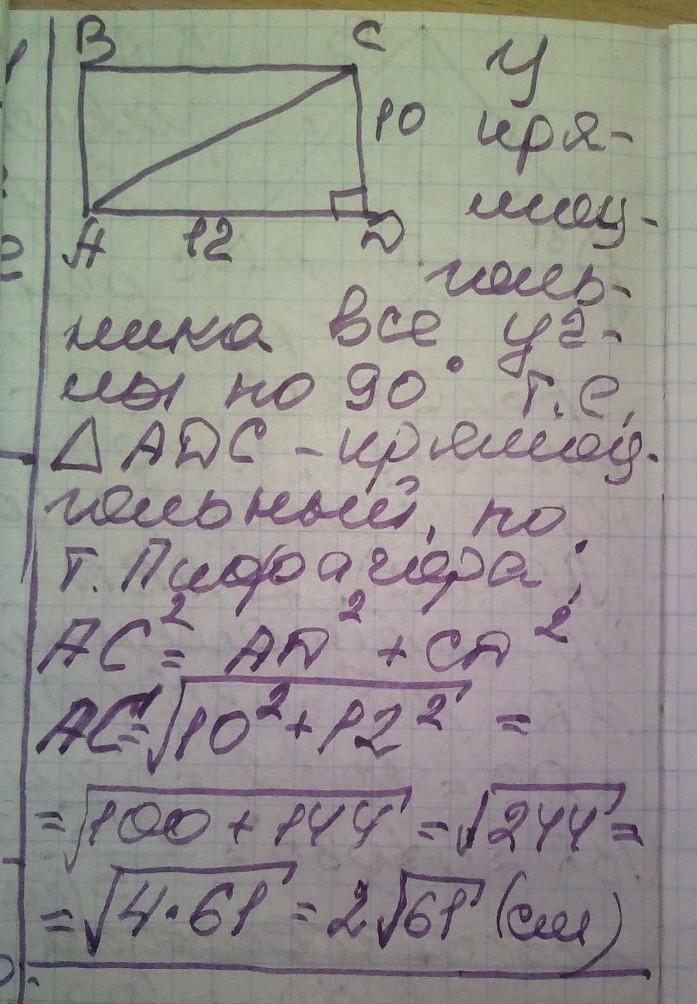 B C
10
A 12 D
У
пря-
моу-
голь-
ника все уг-
лы по 90° т.е.
△ ADC - прямоу-
гольный, по
т. Пифагора:
AC² = AD² + CD²
AC = √10² + 12² =
= √100 + 144 = √244 =
= √4·61 = 2√61 (см)